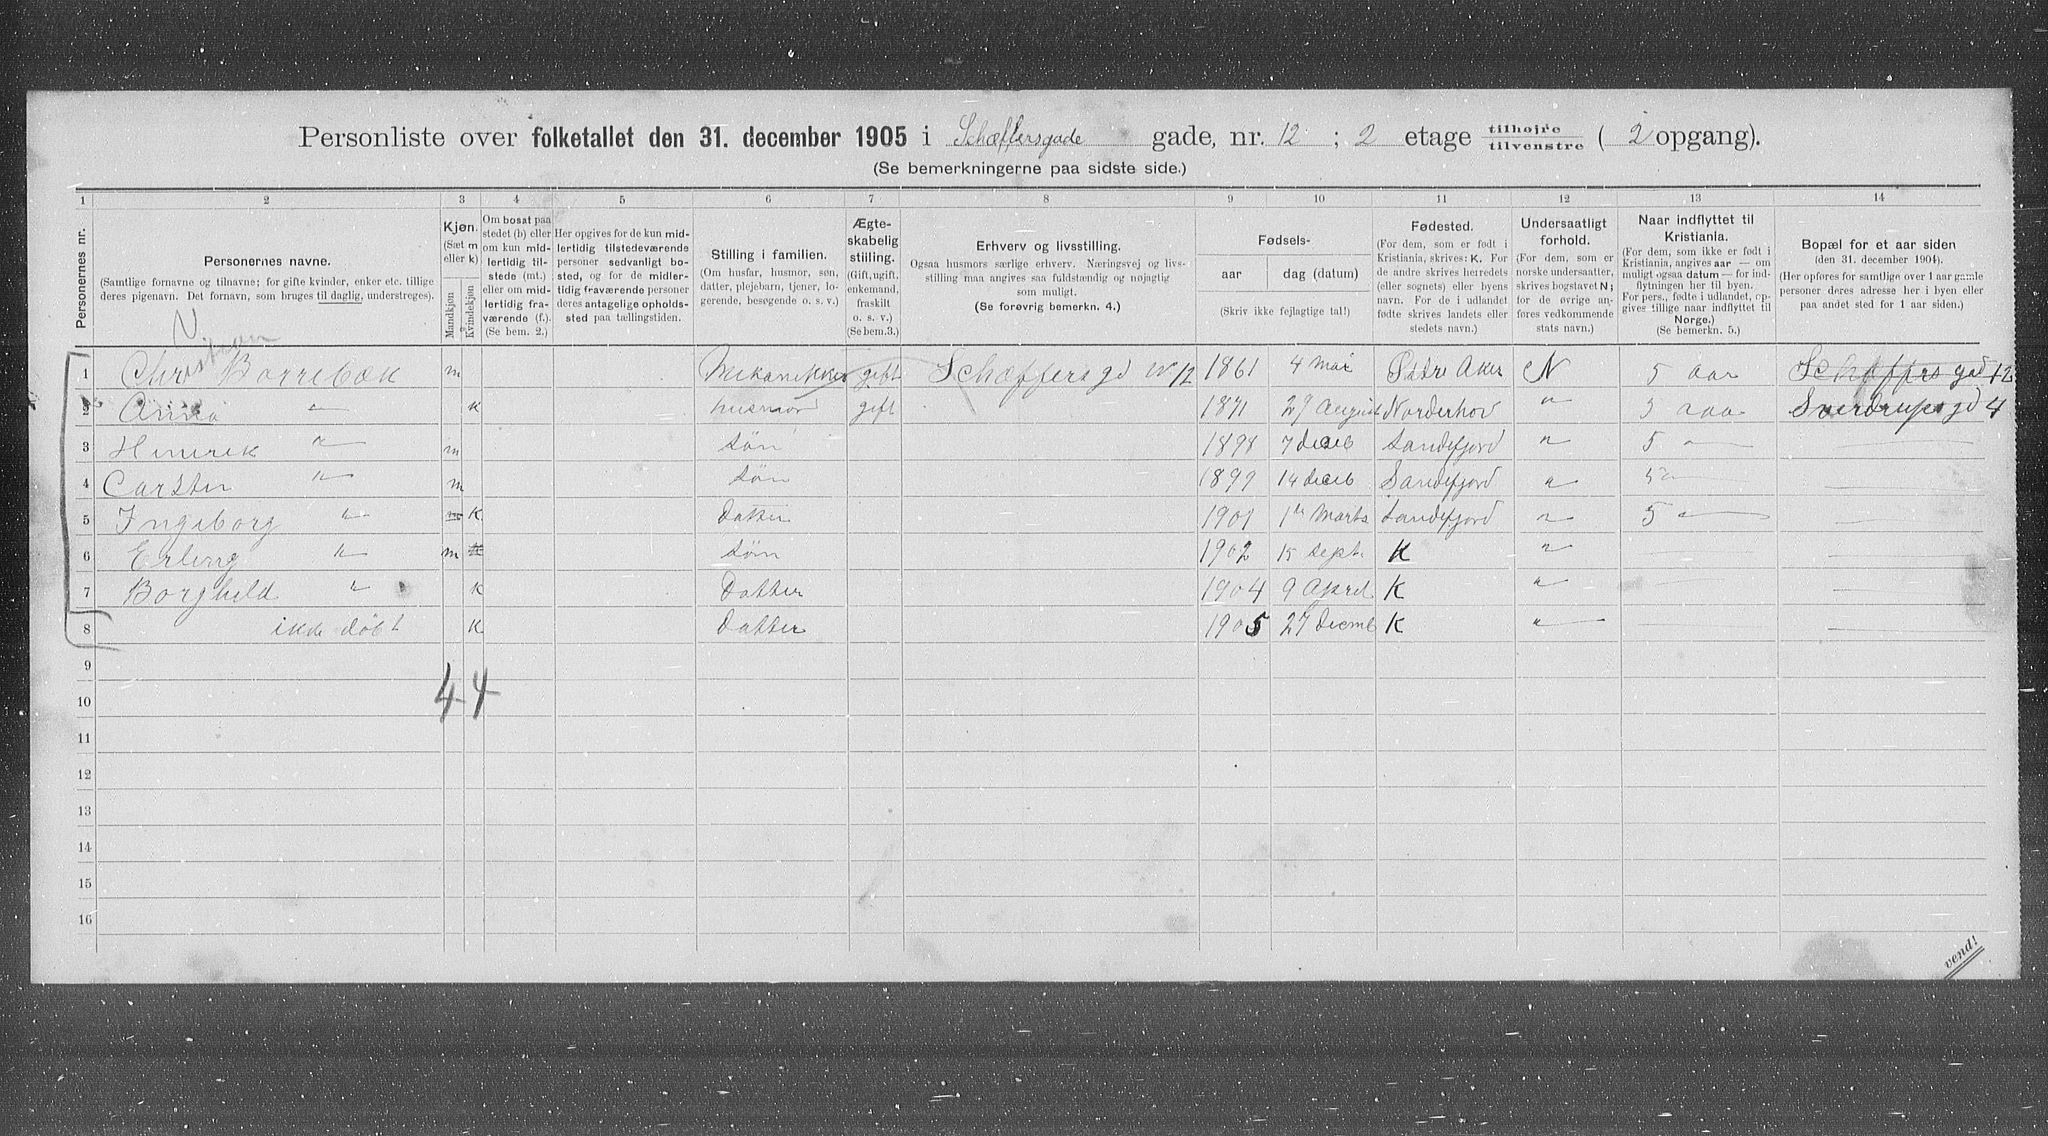 Personliste over folketallet den 31. december 1905 i Schæffersgade gade, nr. 12 ; 2 etage tilhøjre tilvenstre ( 2 opgang).
(Se bemerkningerne paa sidste side.)
1 2 3 4 5 6 7 8 9 10 11 12 13 14
Personernes nr.
Personernes navne.
(Samtlige fornavne og tilnavne; for gifte kvinder, enker etc. tillige deres pigenavn. Det fornavn, som bruges til daglig, understreges).
Kjøn.
(Sæt m eller k)
Mandkjøn
Kvindekjøn
Om bosat paa stedet (b) eller om kun midlertidig tilstede (mt.) eller om midlertidig fraværende (f.). (Se bem. 2.)
Her opgives for de kun midlertidig tilstedeværende personer sedvanligt bosted, og for de midlertidig fraværende personer deres antagelige opholdssted paa tællingstiden.
Stilling i familien.
(Om husfar, husmor, søn, datter, plejebarn, tjener, logerende, besøgende o. s. v.)
Ægteskabelig stilling.
(Gift, ugift, enkemand, fraskilt o. s. v.)
(Se bem. 3.)
Erhverv og livsstilling.
Ogsaa husmors særlige erhverv. Næringsvej og livsstilling maa angives saa fuldstændig og nøjagtig som muligt.
(Se forøvrig bemerkn. 4.)
Fødsels-
aar
dag (datum)
(Skriv ikke fejlagtige tal!)
Fødested.
(For dem, som er født i Kristiania, skrives: K. For de andre skrives herredets (eller sognets) eller byens navn. For de i udlandet fødte skrives landets eller stedets navn.)
Undersaatligt forhold.
(For dem, som er norske undersaatter, skrives bogstavet N; for de øvrige anføres vedkommende stats navn.)
Naar indflyttet til Kristiania.
(For dem, som ikke er født i Kristiania, angives aar — om muligt ogsaa datum — for indflytningen her til byen. For pers., fødte i udlandet, opgives tillige naar indflyttet til Norge.)
(Se bemerkn. 5.)
Bopæl for et aar siden
(den 31. december 1904).
(Her opføres for samtlige over 1 aar gamle personer deres adresse her i byen eller paa andet sted for 1 aar siden.)
N.
1 Christian Borrebæk m Mekaniker gift Schæffersgd No 12 1861 4 Mai Østre Aker N 5 aar Schæffersgad 12
2 Anna " k husmor gift 1871 29 August Norderhov " 5 aaa Sverdrupsgd 4
3 Hinrik " m søn 1898 7 deceb Sandefjord " 5 "
4 Carsten " m søn 1899 14 deceb Sandefjord " 5 "
5 Ingeborg " m K Datter 1901 1te Marts Sandefjord " 5 "
6 Erling " m k søn 1902 15 Sept. K "
7 Borghild " K Datter 1904 9 April K "
8 ikke døbt K Datter 1905 27 Decmb K "
9
4 4
10
11
12
13
14
15
16
vend!